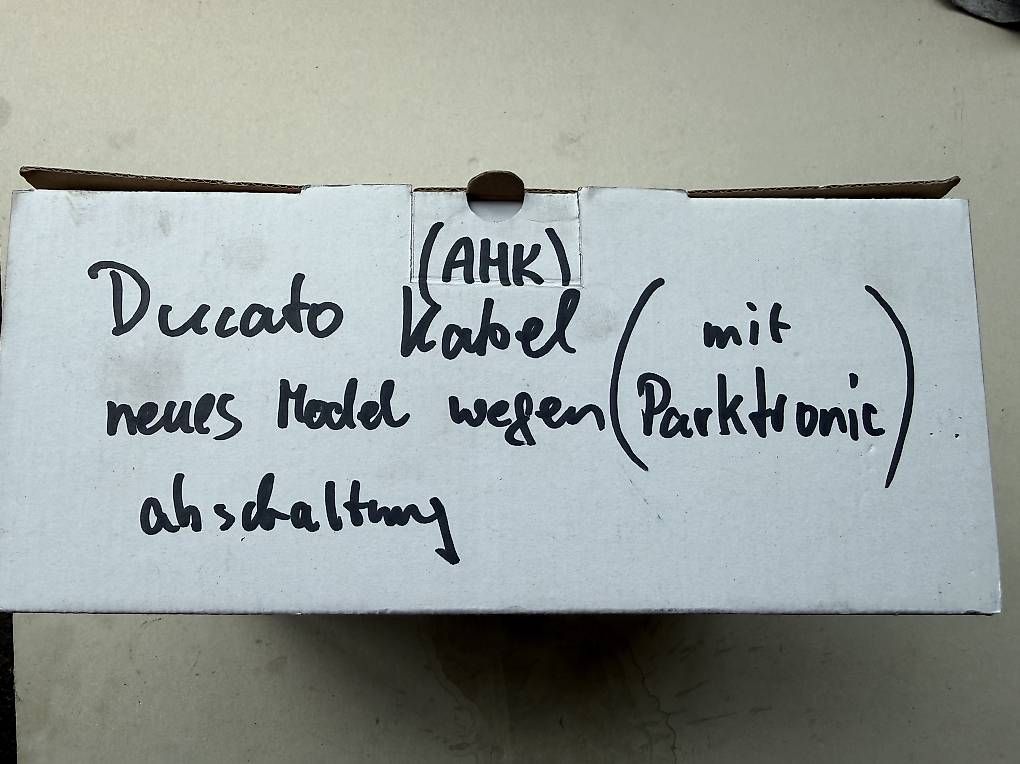 (AHK)
Duccato Kabel (mit
neues Model wegen Parktronic)
abschaltung